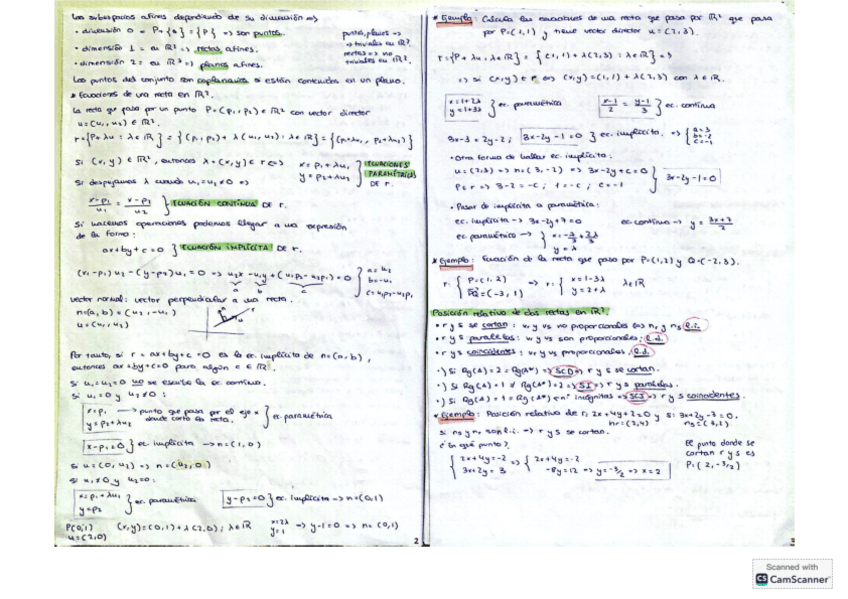 Los subespacios afines dependiendo de su dimensión =>
• dimensión 0 = P+{0} = {P} => son puntos.
• dimensión 1 = en ℝ² => rectas afines.
• dimensión 2 = en ℝ³ => planos afines.
puntos, planos =>
=> triviales en ℝ².
rectas => no
triviales en ℝ².
Los puntos del conjunto son coplanarios si están contenidos en un plano.
* Ecuaciones de una recta en ℝ².
La recta que pasa por un punto P=(p₁,p₂) ∈ ℝ² con vector director
u=(u₁,u₂) ∈ ℝ².
r={P+λu : λ∈ℝ} = {(p₁,p₂) + λ(u₁,u₂) : λ∈ℝ} = {(p₁+λu₁, p₂+λu₂)}
Si (x,y) ∈ ℝ², entonces
x = p₁+λu₁
y = p₂+λu₂
ECUACIONES PARAMÉTRICAS DE r.
Si despejamos λ cuando u₁=u₂≠0 =>
ECUACIÓN CONTÍNUA DE r.
Si hacemos operaciones podemos llegar a una expresión
de la forma:
ax+by+c=0 } ECUACIÓN IMPLÍCITA DE r.
(x-p₁)u₂-(y-p₂)u₁=0 => u₂x-u₁y+(u₁p₂-u₂p₁)=0
a=u₂
b=-u₁
c=u₁p₂-u₂p₁
vector normal: vector perpendicular a una recta.
n=(a,b)=(u₂,-u₁)
u=(u₁,u₂)
Por tanto, si r = ax+by+c=0 es la ec. implícita de n=(a,b),
entonces ax+by+c=0 para algún c ∈ ℝ.
Si u₁=u₂=0 no se escribe la ec continua.
Si u₁=0 y u₂≠0:
y=p₂+λu₂
punto que pasa por el eje x
donde corta la recta.
ec. paramétrica
x-p₁=0 } ec. implícita -> n=(1,0)
si u=(0,u₂) => n=(u₂,0)
si u₁≠0 y u₂=0:
x=p₁+λu₁
y=p₂
ec. paramétrica
y-p₂=0 } ec. implícita -> n=(0,1)
P(0,1)
u=(2,0)
(x,y)=(0,1)+λ(2,0); λ∈ℝ
x=2λ
y=1
-> y-1=0 => n=(0,1)
2
* Ejemplo: Calcula las ecuaciones de una recta que pasa por ℝ² que pasa
por P=(1,1) y tiene vector director u=(2,3).
r={P+λu : λ∈ℝ} = {(1,1)+λ(2,3) : λ∈ℝ} =>
=> si (x,y) ∈ r => (x,y)=(1,1)+λ(2,3) con λ∈ℝ.
x=1+2λ
y=1+3λ
ec. paramétrica
x-1/2 = y-1/3 } ec. contínua
3x-3=2y-2; 3x-2y-1=0 } ec. implícita. =>
a=3
b=-2
c=-1
• Otra forma de hallar ec. implícita:
u=(2,3) => n=(3,-2) => 3x-2y+c=0
P∈r => 3-2=-c; 1=-c; c=-1
3x-2y-1=0
• Pasar de implícita a paramétrica:
ec. implícita -> 3x-2y+7=0
ec continua -> y = 3x+7/2
ec paramétrica ->
y=λ
* Ejemplo: Ecuación de la recta que pasa por P=(1,2) y Q=(-2,3).
r: P=(1,2)
PQ=(-3,1)
=> r:
x=1-3λ
y=2+λ
λ∈ℝ
Posición relativa de dos rectas en ℝ².
• r y s se cortan: vr y vs no proporcionales <=> nr y ns l.i.
• r y s paralelas: vr y vs son proporcionales: l.d.
• r y s coincidentes: vr y vs proporcionales. l.d.
·) Si Rg(A)=2=Rg(A*) => SCD => r y s se cortan.
·) Si Rg(A)=1 ≠ Rg(A*)=2 => SI => r y s paralelas.
·) Si Rg(A)=1=Rg(A*) ≠ nº incógnitas => SCI => r y s coincidentes.
* Ejemplo: Posición relativa de r: 2x+4y+2=0 y s: 3x+2y-3=0.
nr=(2,4) ns=(3,2)
si nr y ns son l.i. -> r y s se cortan.
¿En qué punto?
2x+4y=-2
3x+2y=3
=>
2x+4y=-2
-8y=12
=> y=-3/2 => x=2
El punto donde se
cortan r y s es
P=(2,-3/2)
3
Scanned with
CS CamScanner